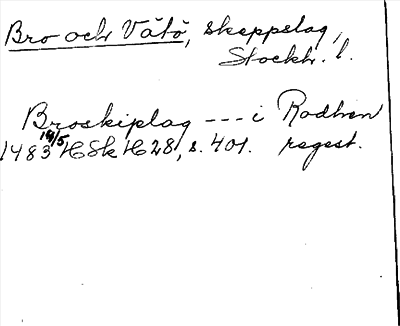 Bro och Vätö, skeppslag,
Stockh. l.
Broskiplag --- i Rodhen
1483 14/5 HSk H 28, s. 401. regest.